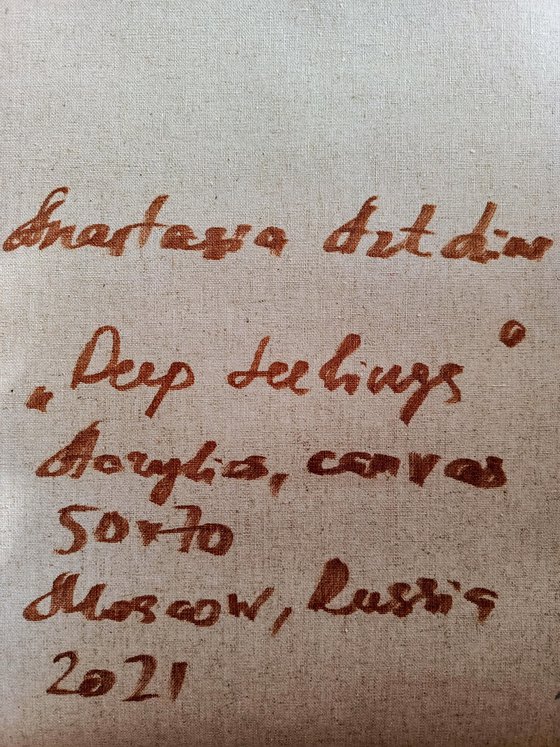 Anastasia Art Line
„Deep feelings"
Acrylics, canvas
50x70
Moscow, Russia
2021